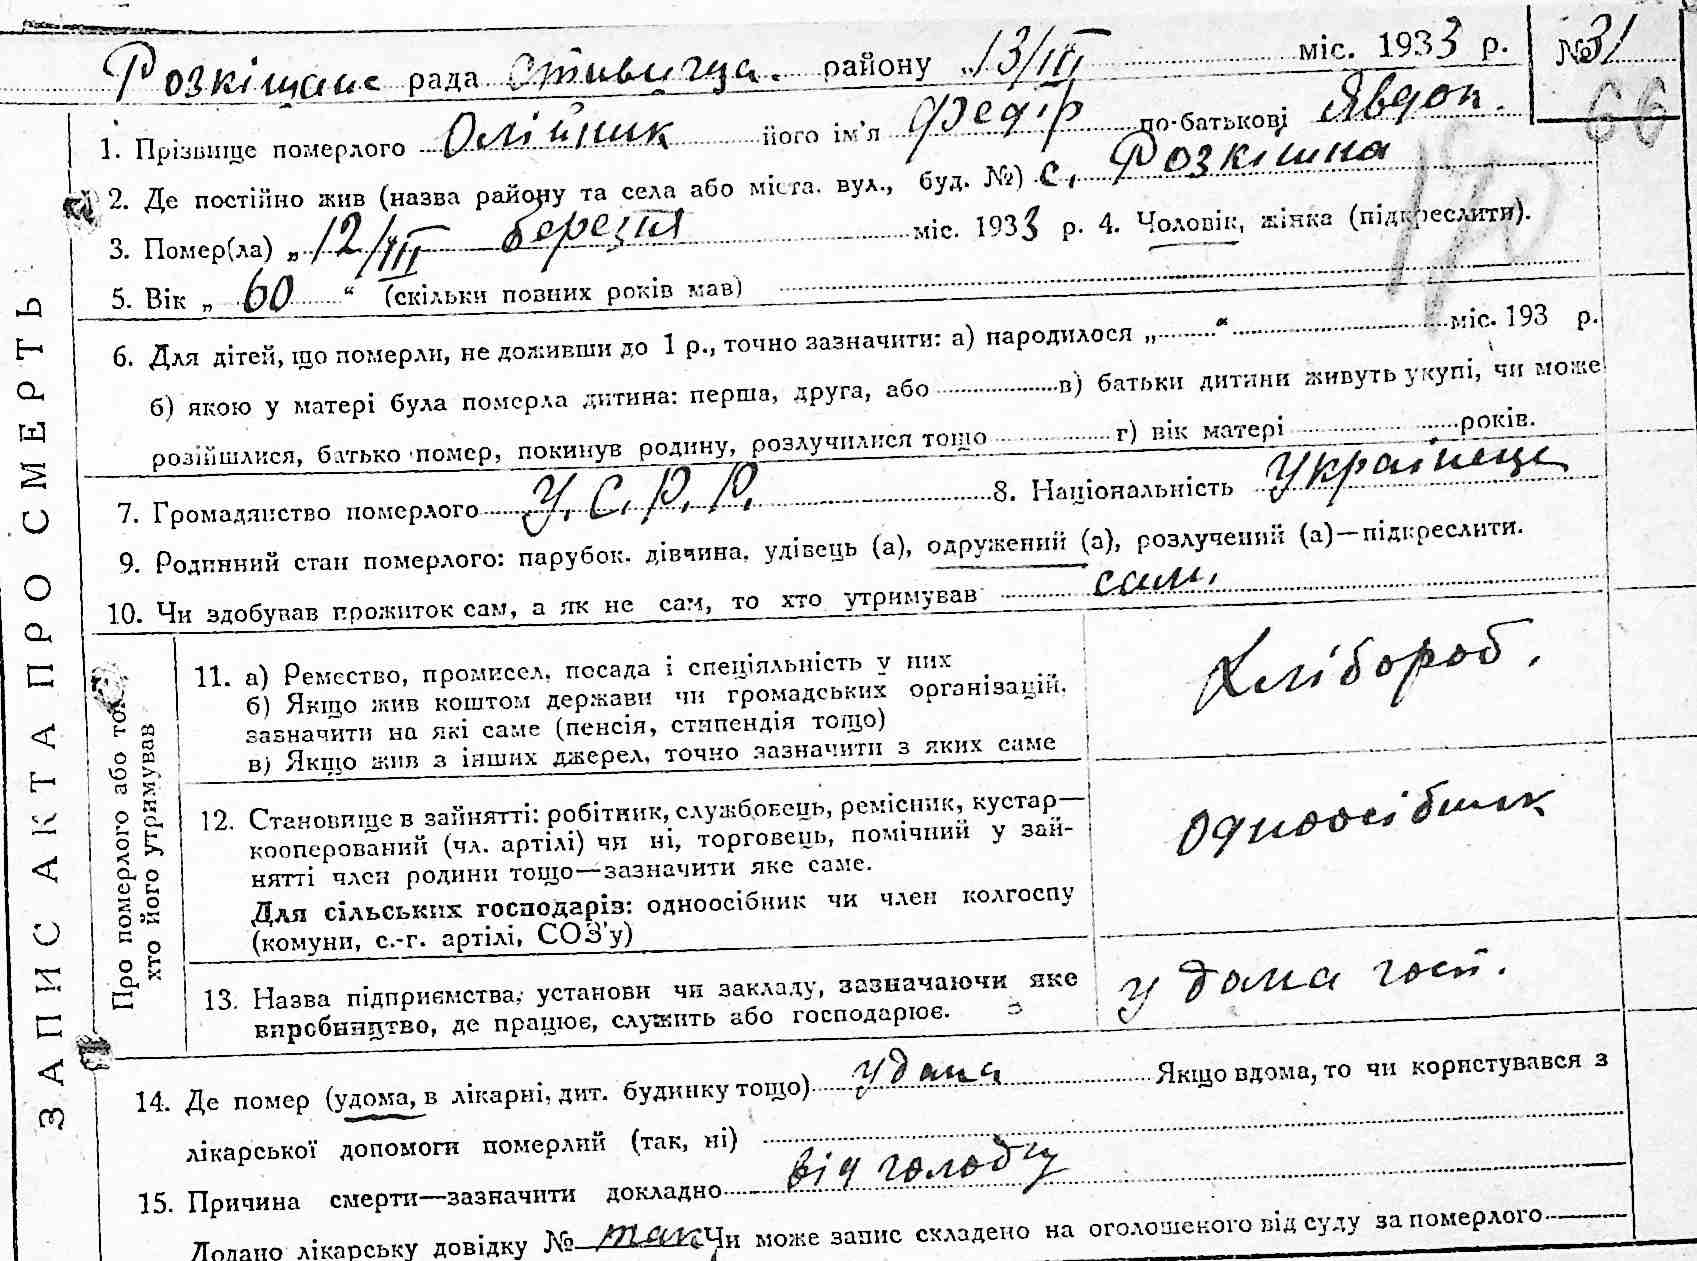 Розкішанс рада Ставищан. району „13/III міс. 1933 р. №31
66
1. Прізвище померлого Олійник його ім'я Федір по-батькові Явдок.
2. Де постійно жив (назва району та села або міста, вул., буд. №) с. Розкішна
3. Помер(ла) „12/III березня міс. 1933 р. 4. Чоловік, жінка (підкреслити).
5. Вік „ 60 “ (скільки повних років мав)
6. Для дітей, що померли, не доживши до 1 р., точно зазначити: а) народилося „ “ міс. 193 р.
б) якою у матері була померла дитина: перша, друга, або в) батьки дитини живуть укупі, чи може
розійшлися, батько помер, покинув родину, розлучилися тощо г) вік матері років.
7. Громадянство померлого У. С. Р. Р. 8. Національність Українець
9. Родинний стан померлого: парубок, дівчина, удівець (а), одружений (а), розлучений (а)—підкреслити.
10. Чи здобував прожиток сам, а як не сам, то хто утримував сам.
ЗАПИС АКТА ПРО СМЕРТЬ
Про померлого або того,
хто його утримував
11. а) Ремество, промисел, посада і спеціяльність у них
б) Якщо жив коштом держави чи громадських організацій,
зазначити на які саме (пенсія, стипендія тощо)
в) Якщо жив з інших джерел, точно зазначити з яких саме
Хлібороб.
12. Становище в зайнятті: робітник, службовець, ремісник, кустар—
кооперований (чл. артілі) чи ні, торговець, помічний у зай-
нятті член родини тощо—зазначити яке саме.
Для сільських господарів: одноосібник чи член колгоспу
(комуни, с.-г. артілі, СОЗ'у)
Одноосібник
13. Назва підприємства, установи чи закладу, зазначаючи яке
виробництво, де працює, служить або господарює.
у дома госп.
14. Де помер (удома, в лікарні, дит. будинку тощо) удома Якщо вдома, то чи користувався з
лікарської допомоги померлий (так, ні)
15. Причина смерти—зазначити докладно від голоду
Додано лікарську довідку № так Чи може запис складено на оголошеного від суду за померлого